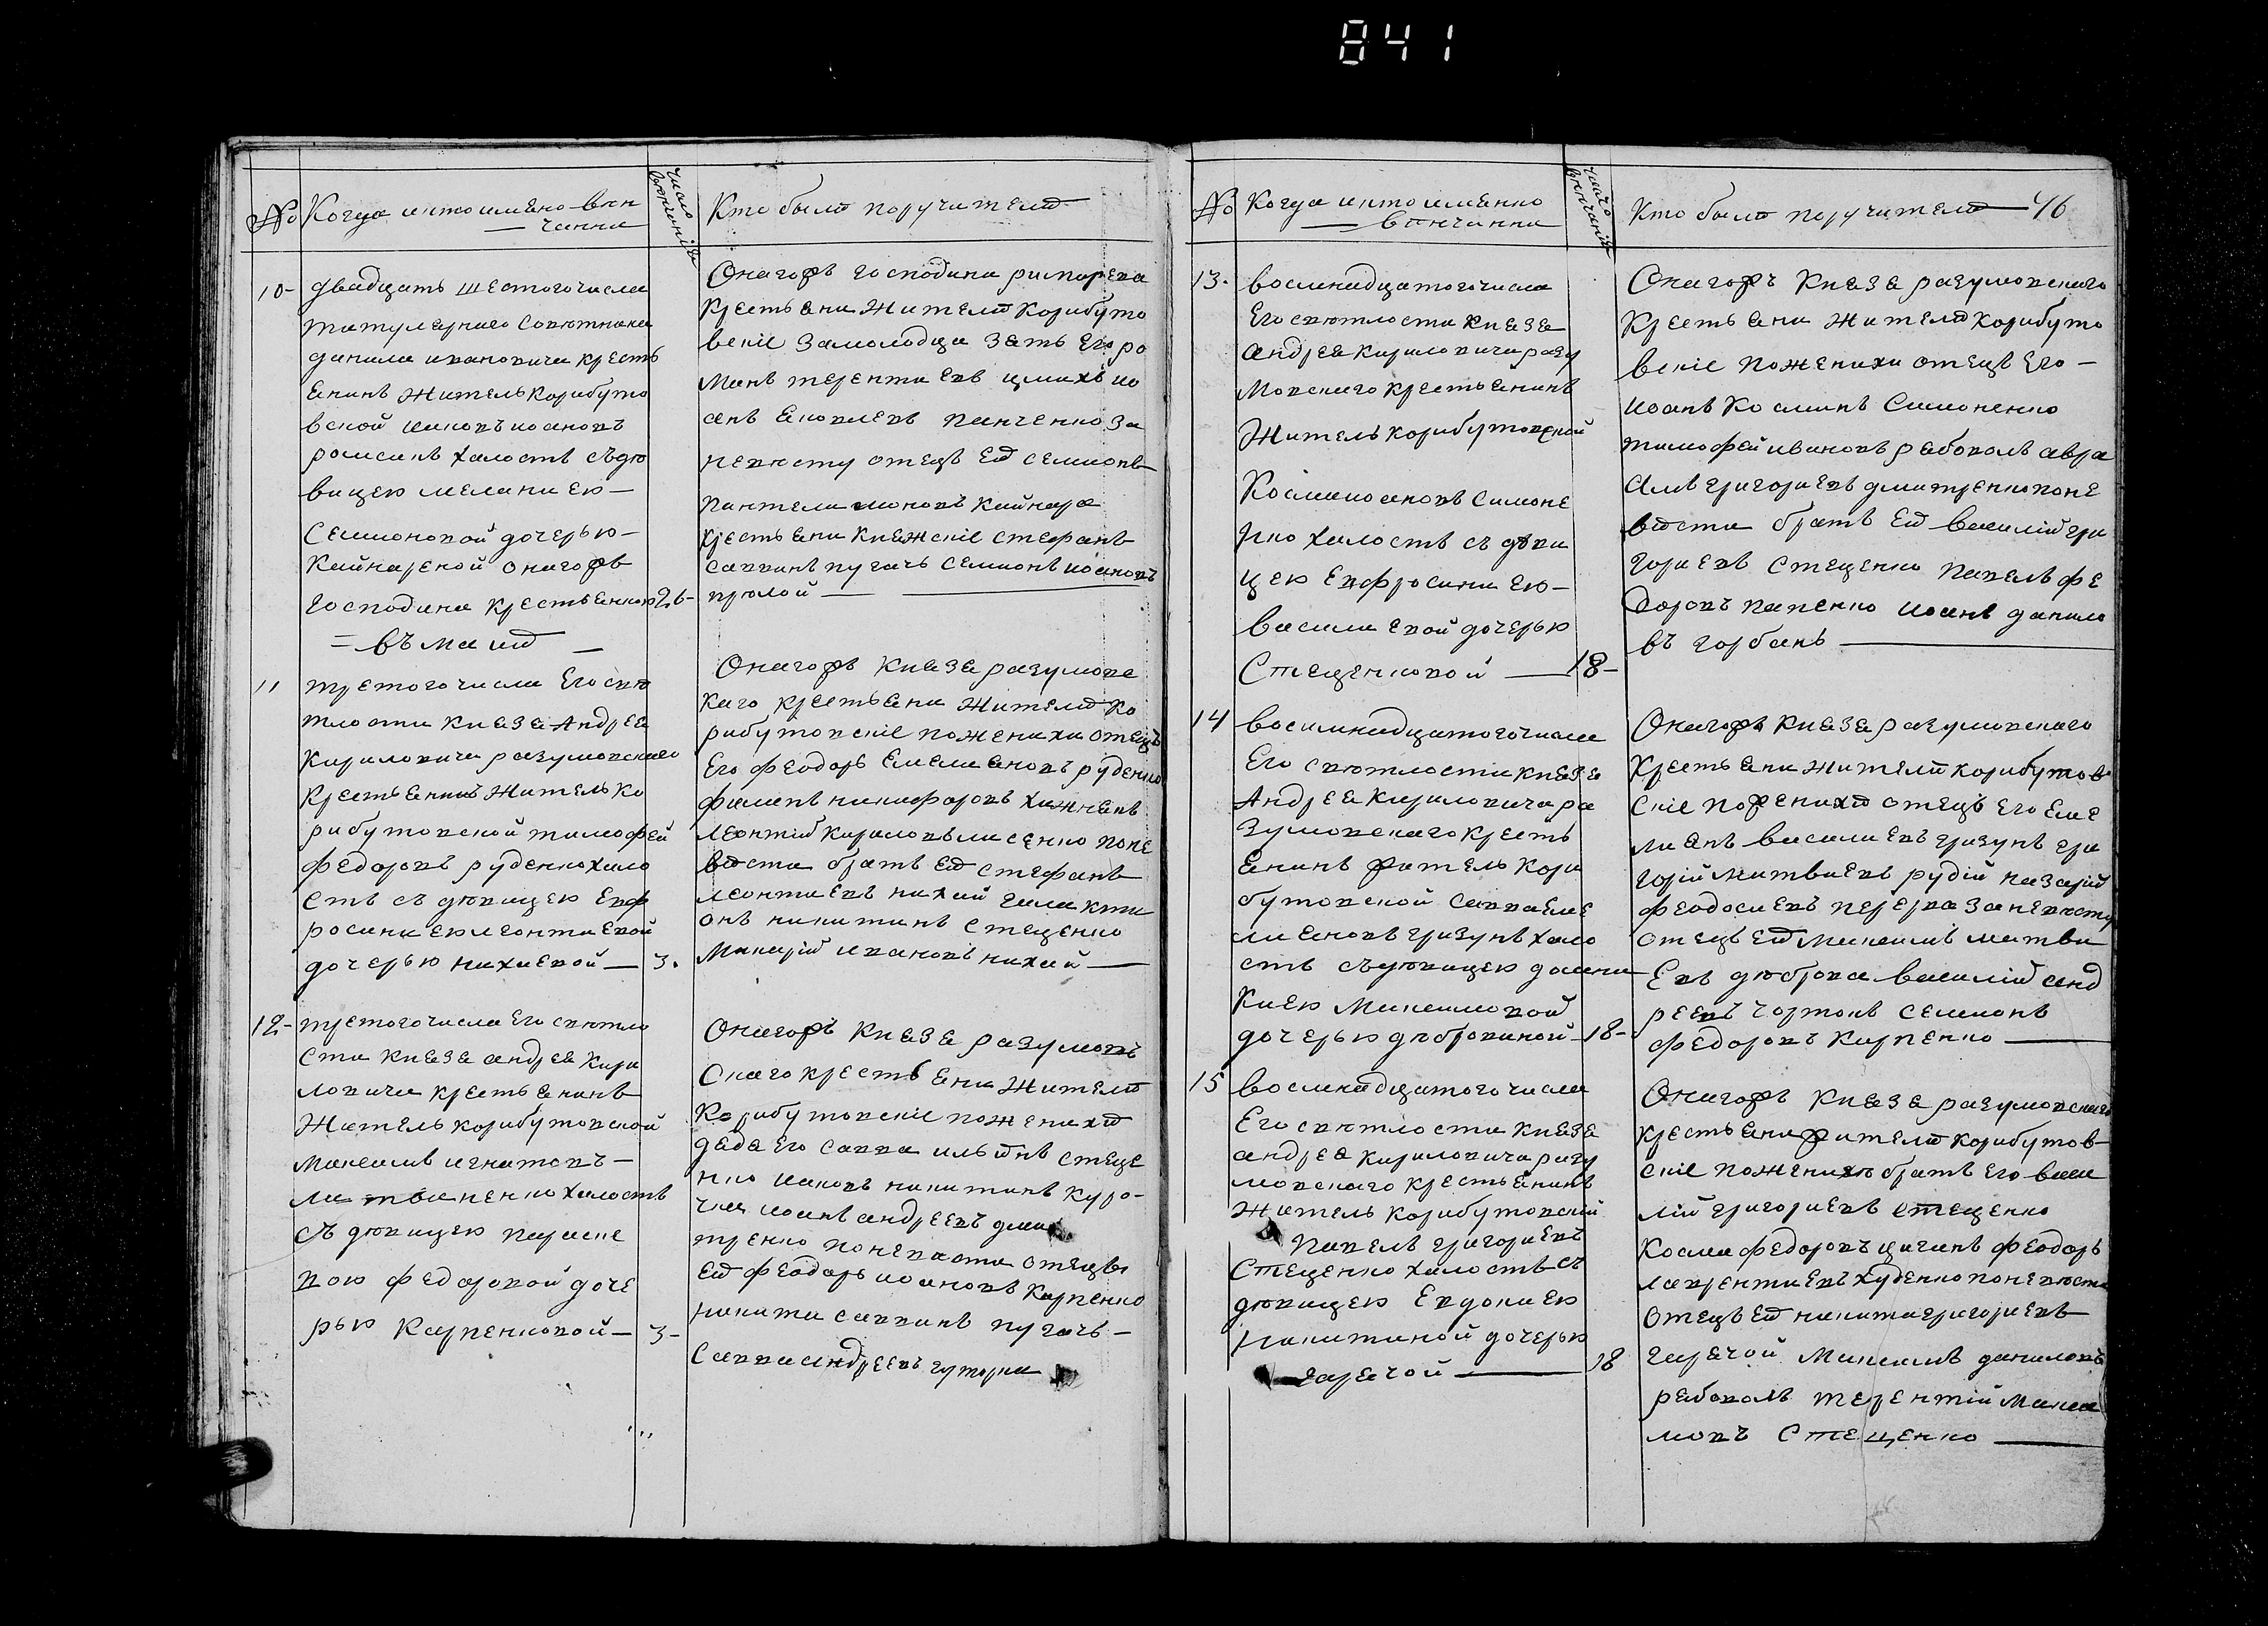 841
№ Когда икто имѣно вѣн
чанни
число венчанія
Кто были поручители
10- двадцать шестогочисла
титулярнаго Совѣтника
данила ивановича кресть
янинъ Житель Корибуто
вской Иаковъ иоановъ
холостъ съдѣ
вицею меланиею—
Семионовой дочерью—
Кайнарской онагожъ
Господина крестьянкою 26-
= въ маии —
Онагожъ господина
Крестьяни Жители Корибуто
вскіе Замолодца зать Его ро
манъ терентиевъ ио
анъ Яковлевъ панченко за
невѣсту отецъ Ея семионъ
пантелимоновъ Кайнара
крестьяни Княжскіе стефанъ
саввинъ пугачъ семионъ иоановъ

11 третогочисла Егосвѣ
тлости Князя Андрея
Кириловича разумовскаго
Крестьянинъ Житель Ко
рибутовской тимофей
федоровъ руденко холо
стъ съ дѣвицею Евф
росиниею леонтиевой
дочерью нихаевой — 3.
Онагожъ Князя разумовс
каго крестьяни Жители Ко
рибутовскіе пожениха отецъ
Его феодоръ Емелияновъ руденко
филипъ никифоровъ хижнякъ
леонтій Кириловъ лисенко поне
вѣсти братъ Ея стефанъ
леонтиевъ нихай
онъ никитинъ стеценко
Макарій ивановъ нихай —
12- третогочисла Его свѣтло
сти Князя андрея Кири
ловича крестьянинъ
Житель корибутовской
Максимъ игнатовъ—
холостъ
съ дѣвицею параске
вою федоровой доче
рью Карпенковой — 3-
Онагожъ Князя разумовъ
скаго крестьяни Жители
Корибутовскіе поженихѣ
дядя Его савва стеце
нко иаковъ никитинъ Куро-
чка иоанъ андреевъ дми
тренко поневѣсти отецъ
Ея феодоръ иоановъ Карпенко
никита саввинъ пугачъ —
Савва андреевъ гуторка
№ Когда икто имянно
вѣнчанни
число венчанія
Кто были поручители 46
13. восмнадцатогочисла
Егосвѣтлости Князя
андрея кириловича разу
мовскаго крестьянинъ
Житель корибутовской
Косма иоановъ Симоне
нко холостъ съ дѣви
цею Евфросиниею—
василиевой дочерью
Стеценковой — 18-
Онагожъ Князя разумовскаго
крестьяни жители корибуто
вскіе пожениха отецъ Его —
иоанъ Косминъ Симоненко
тимофей ивановъ рябоволъ авра
амъ григориевъ дмитренко поне
вѣсти братъ Ея василій гри
гориевъ стеценко павелъ фе
доровъ папенко иоанъ данило
въ горбань —
14 восимнадцатогочисла
Его свѣтлости князя
Андрея кириловича ра
зумовскаго кресть
янинъ житель кори
бутовской савва Еме
лияновъ гризунъ холо
стъ съдѣвицею домни
киею Максимовой
дочерью дѣбровиной — 18-
Онагожъ князя разумовскаго
крестьяни жители корибутов
скіе поженихѣ отецъ Его Еме
лиянъ василиевъ гризунъ гри
горій матвиевъ рудій назарій
феодосиевъ перерва за невѣсту
отецъ Ея Максимъ матви
Евъ дѣброва василій анд
реевъ чортокъ семионъ
федоровъ Карпенко —
15 восмнадцатогочисла
Его свѣтлости Князя
андрея Кириловича разу
мовскаго крестьянинъ
житель корибутовскій
Павелъ григориевъ
Стеценко холостъ съ
дѣвицею Евдокиею
никитиной дочерью
гарячой — 18
Онагожъ Князя разумовскаго
крестьяни жители корибутов
скіе поженихѣ братъ Его васи
лій григориевъ стеценко
Косма федоровъ циганъ феодоръ
лаврентиевъ худенко поневѣсти
отецъ Ея никита григориевъ
гарячой Максимъ даниловъ
рябоволъ терентій Макси
мовъ Стеценко —